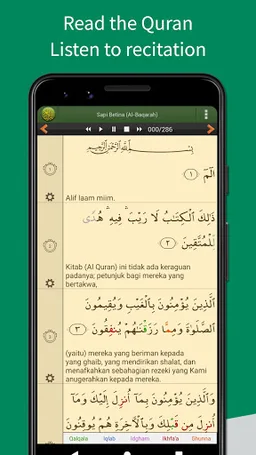 Read the Quran
Listen to recitation
Sapi Betina (Al-Baqarah)
000/286
بِسْمِ اللَّهِ الرَّحْمَٰنِ الرَّحِيمِ
الٓمٓ ﴿١﴾
Alif laam miim.
ذَٰلِكَ ٱلْكِتَٰبُ لَا رَيْبَ ۛ فِيهِ ۛ هُدًى
لِّلْمُتَّقِينَ ﴿٢﴾
Kitab (Al Quran) ini tidak ada keraguan
padanya; petunjuk bagi mereka yang
bertakwa,
ٱلَّذِينَ يُؤْمِنُونَ بِٱلْغَيْبِ وَيُقِيمُونَ
ٱلصَّلَوٰةَ وَمِمَّا رَزَقْنَٰهُمْ يُنفِقُونَ ﴿٣﴾
(yaitu) mereka yang beriman kepada
yang ghaib, yang mendirikan shalat, dan
menafkahkan sebahagian rezeki yang Kami
anugerahkan kepada mereka.
وَٱلَّذِينَ يُؤْمِنُونَ بِمَآ أُنزِلَ إِلَيْكَ وَمَآ
أُنزِلَ مِن قَبْلِكَ وَبِٱلْءَاخِرَةِ هُمْ يُوقِنُونَ
Qalqala Iqlab Idgham Ikhfa'a Ghunna